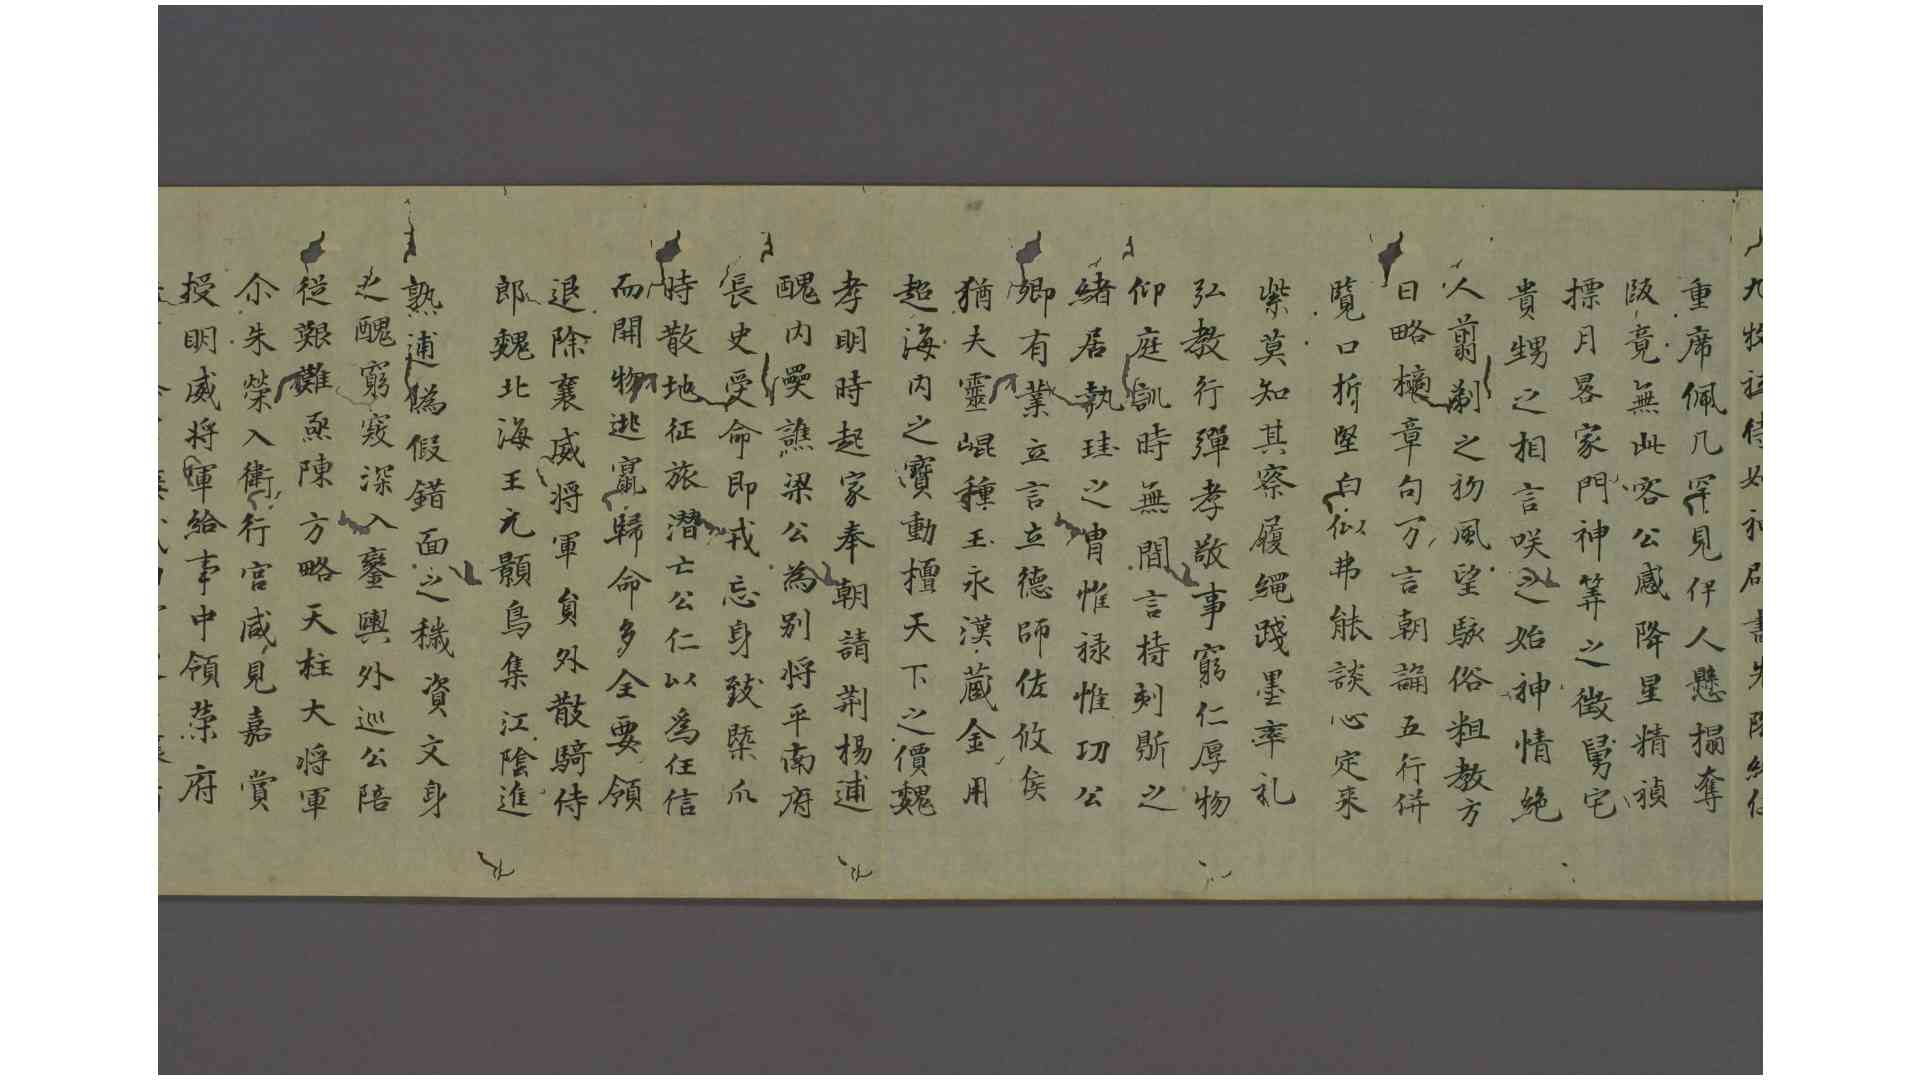 重席佩几罕見伴人懸搨奪
販竟無此客公感降星精禎
摽月畧家門神筭之徵舅宅
貴甥之相言咲之始神情絶
人翦剃之初風望駭俗粗教方
日略樀章句万言朝誦五行併
覽口折堅白似弗能談心定来
紫莫知其察履繩踐墨率礼
弘教行彈孝敬事窮仁厚物
仰庭訓時無間言持刾斲之
緒居執珪之胄惟禄惟功公
卿有業立言立德師佐攸侯
猶夫靈崐種玉永漢蔵金用
超海内之寶動檀天下之價魏
孝明時起家奉朝請荆楊逋
醜内舋譙梁公為别将平南府
長史受命即戎忘身致槩爪
時散地征旅潜亡公仁以爲任信
而開物逃竄歸命多全要領
退除襄威将軍負外散騎侍
郎魏北海王元顥鳥集江陰進
熟逋僞假錯面之穢資文身
之醜窮宼深入鑾輿外巡公陪
従艱難亟陳方略天柱大将軍
尒朱榮入衛行宫咸見嘉賞
授明威将軍給事中領榮府